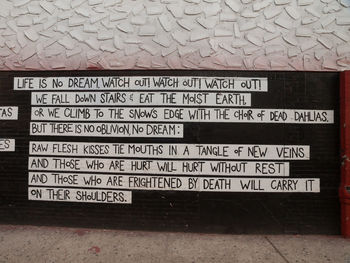 LIFE IS NO DREAM. WATCH OUT! WATCH OUT! WATCH OUT!
WE FALL DOWN STAIRS & EAT THE MOIST EARTH,
TAS
OR WE CLIMB TO THE SNOWS EDGE WITH THE CHOIR OF DEAD DAHLIAS.
BUT THERE IS NO OBLIVION, NO DREAM:
ES
RAW FLESH KISSES TIE MOUTHS IN A TANGLE OF NEW VEINS
AND THOSE WHO ARE HURT WILL HURT WITHOUT REST
AND THOSE WHO ARE FRIGHTENED BY DEATH WILL CARRY IT
ON THEIR SHOULDERS.